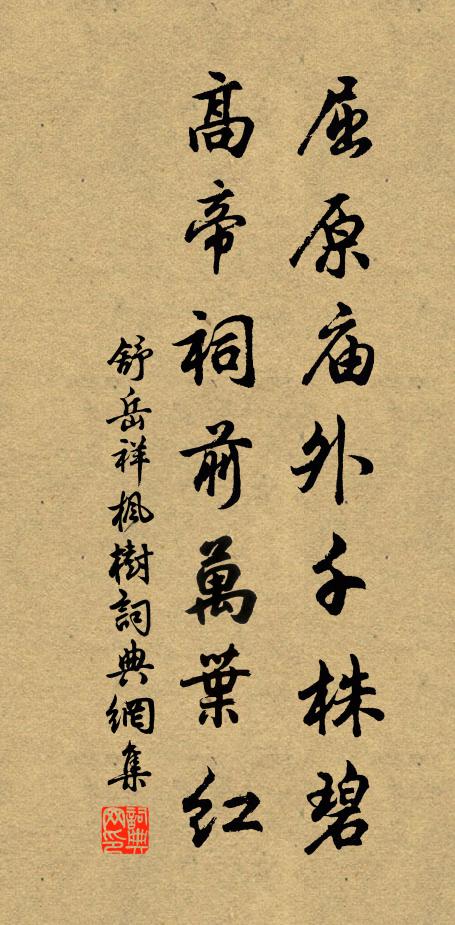 屈原庙外千株碧
高帝祠前萬葉红
舒岳祥枫樹詞典網集
詞典网印